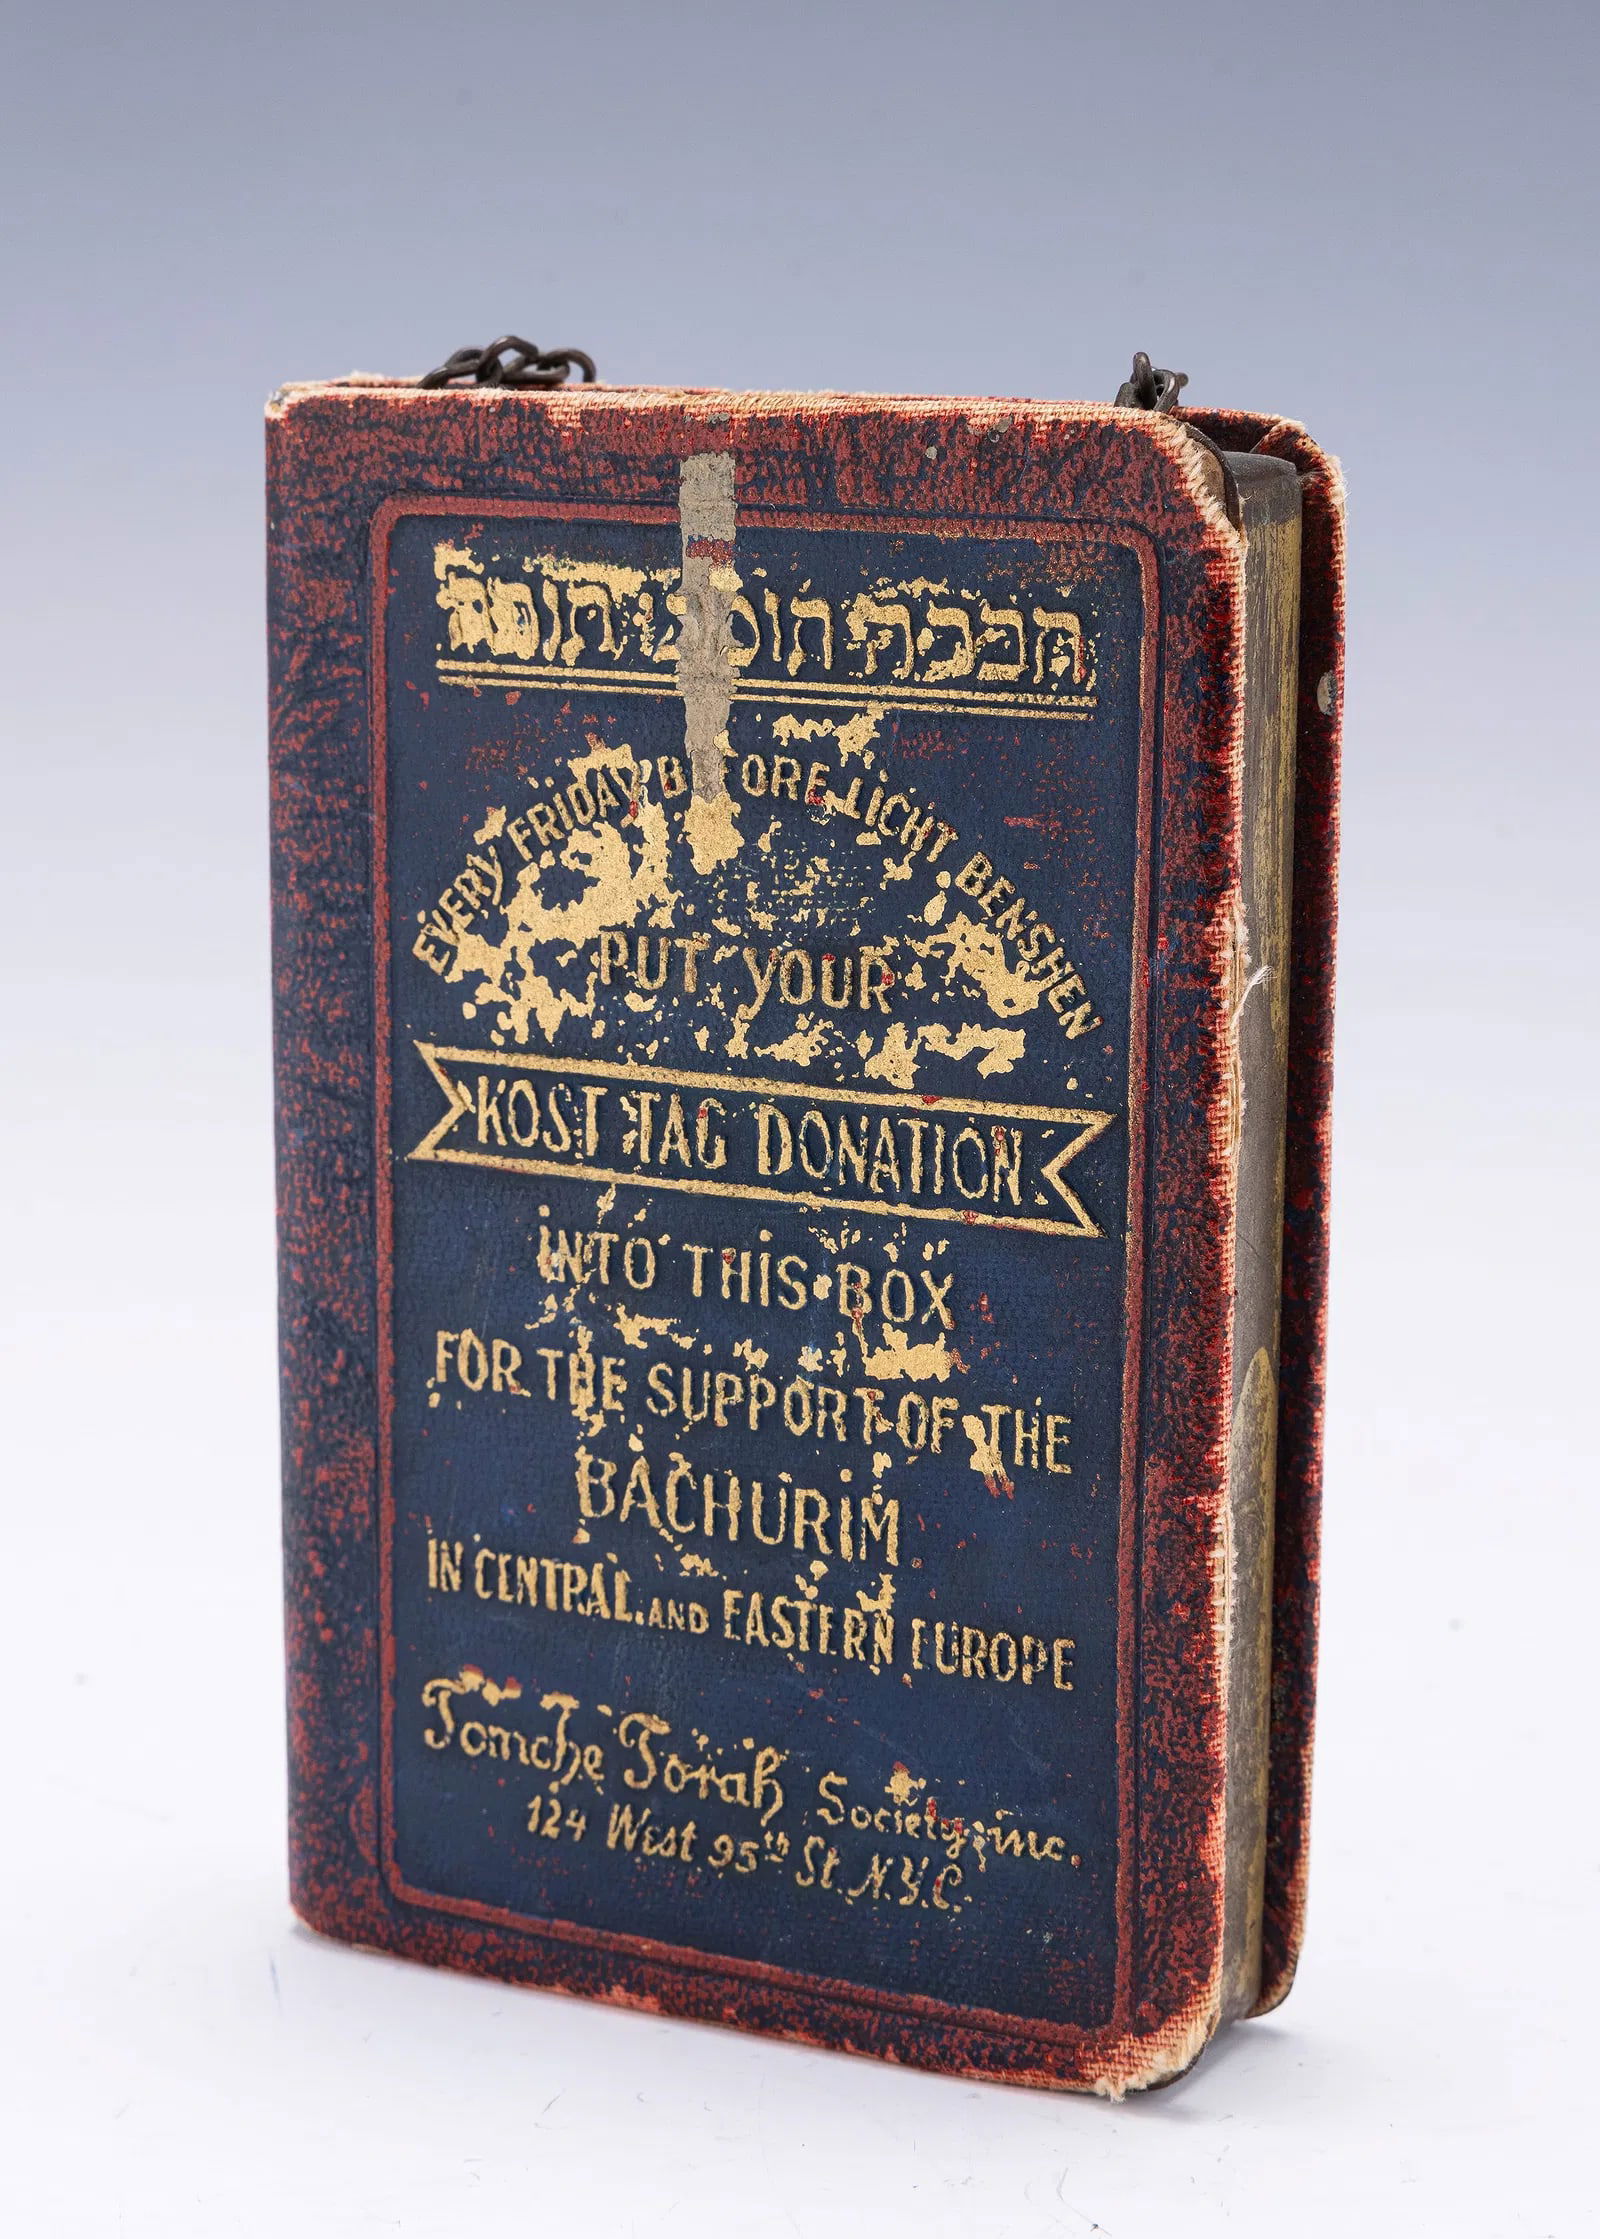 חברת תומכי תורה
EVERY FRIDAY BEFORE LICHT BENSHEN
PUT YOUR
KOST TAG DONATION
INTO THIS BOX
FOR THE SUPPORT OF THE
BACHURIM
IN CENTRAL AND EASTERN EUROPE
Tomche Torah Society, inc.
124 West 95th St. N.Y.C.